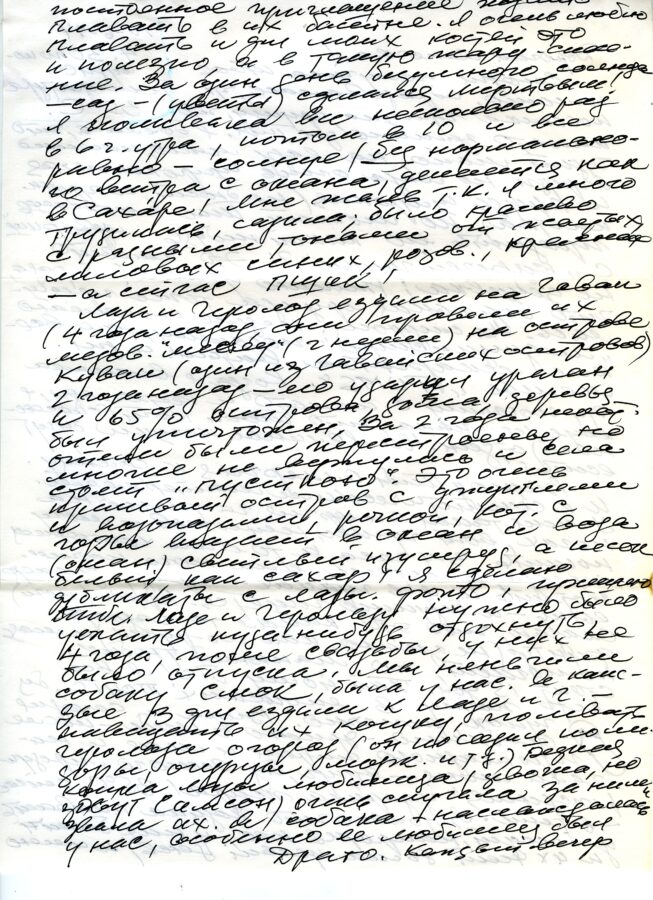 постоянное приглашение ходить
плавать в их басейне. Я очень люблю
плавать и для моих костей это
и полезно, а в такую жару спасе-
ние. За один день безумного солнца
– сад – (цветы) сделался мертвым.
Я поливала все несколько раз
в 6 ч. утра, потом в 10 и все
равно – солнце, без нормально-
го ветра с океана, делается как
в Сахаре! Мне жаль т.к. я много
трудилась, садила. было красиво
с разными тонами от желтых,
лиловых синих, розов., красных
– а сейчас пшик!
Лада и Геролод ездили на Гаваи
(4 года назад они провели их
медов. "месяц" (2 недели) на острове
Каваи (один из Гавайских островов)
2 года назад – его ударил ураган
и 65% острова, деревья
был уничтожен. За 2 года
отели были перестроены, но
многие не вернулись и села
стоят "пустыню". Это очень
красивый остров с джунглями
и водопадами, речкой, кот. с
горы впадает в океан и вода
(океан) светлый изумруд, а песок
белый как сахар! Я сделаю
дубликаты с Лады. фото, пришлю
Ладе и Герольду нужно было
уехать куда нибудь отдохнуть,
4 года, после свадьбы у них не
было отпуска. Мы нянчили
собаку Смок, была у нас. И каж-
дые 3 дня ездили к Ладе и Г. –
навещать их кошку, поливать
Герольда огород (он посадил поми-
доры, огурцы, морк. и т.д.) Бедная
кошка Лады любимица, (девочка, но
зовут Самсон) очень скучала за ними,
ждала их. А собака наслаждалась
у нас, особенно ее любимец был
Драго. Каждый вечер